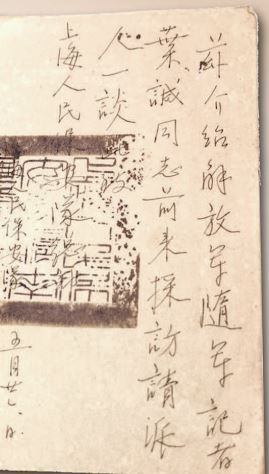 茲介紹解放军隨军記者
葉誠同志前来採訪請派
人一談
上海人民保安隊
五月廿八日